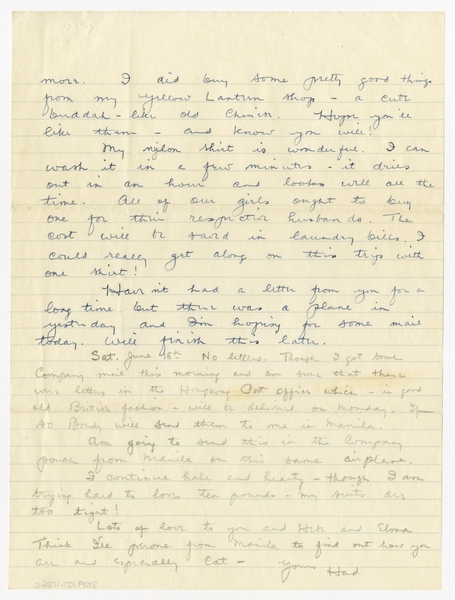 more. I did buy some pretty good things
from my Yellow Lantern shop - a cute
buddah - like old Chinese. Hope you'll
like them - and know you will!
My nylon shirt is wonderful. I can
wash it in a few minutes - it dries
out in an hour and looks well all the
time. All of our girls ought to buy
one for their respective husbands. The
cost will be saved in laundry bills. I
could really get along on this trip with
one shirt!
Haven't had a letter from you for a
long time but there was a plane in
yesterday and I'm hoping for some mail
today. Will finish this later.
Sat. June 18th No letters. Though I got some
Company mail this morning and am sure that there
were letters in the Hongkong Post office which - in good
old British fashion - will be delivered on Monday.
so Boney will send them to me in Manila.
Am going to send this in the Company
pouch from Manila on this same airplane.
I continue hale and hearty - though I am
trying hard to lose ten pounds - my suits are
too tight!
Lots of love to you and and Elma
Think I'll phone from Manila to find out how you
are and especially Cat - Yours Had